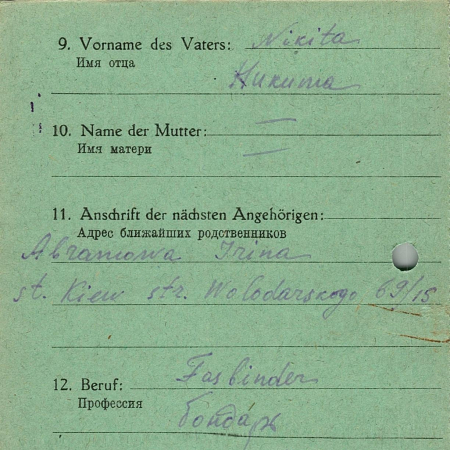 9. Vorname des Vaters: Nikita
Имя отца Никита
10. Name der Mutter: —
Имя матери —
11. Anschrift der nächsten Angehörigen:
Адрес ближайших родственников
Abramowa Irina
st. Kiew str. Wolodarskogo 69/15
12. Beruf: Fasbinder
Профессия Бондарь